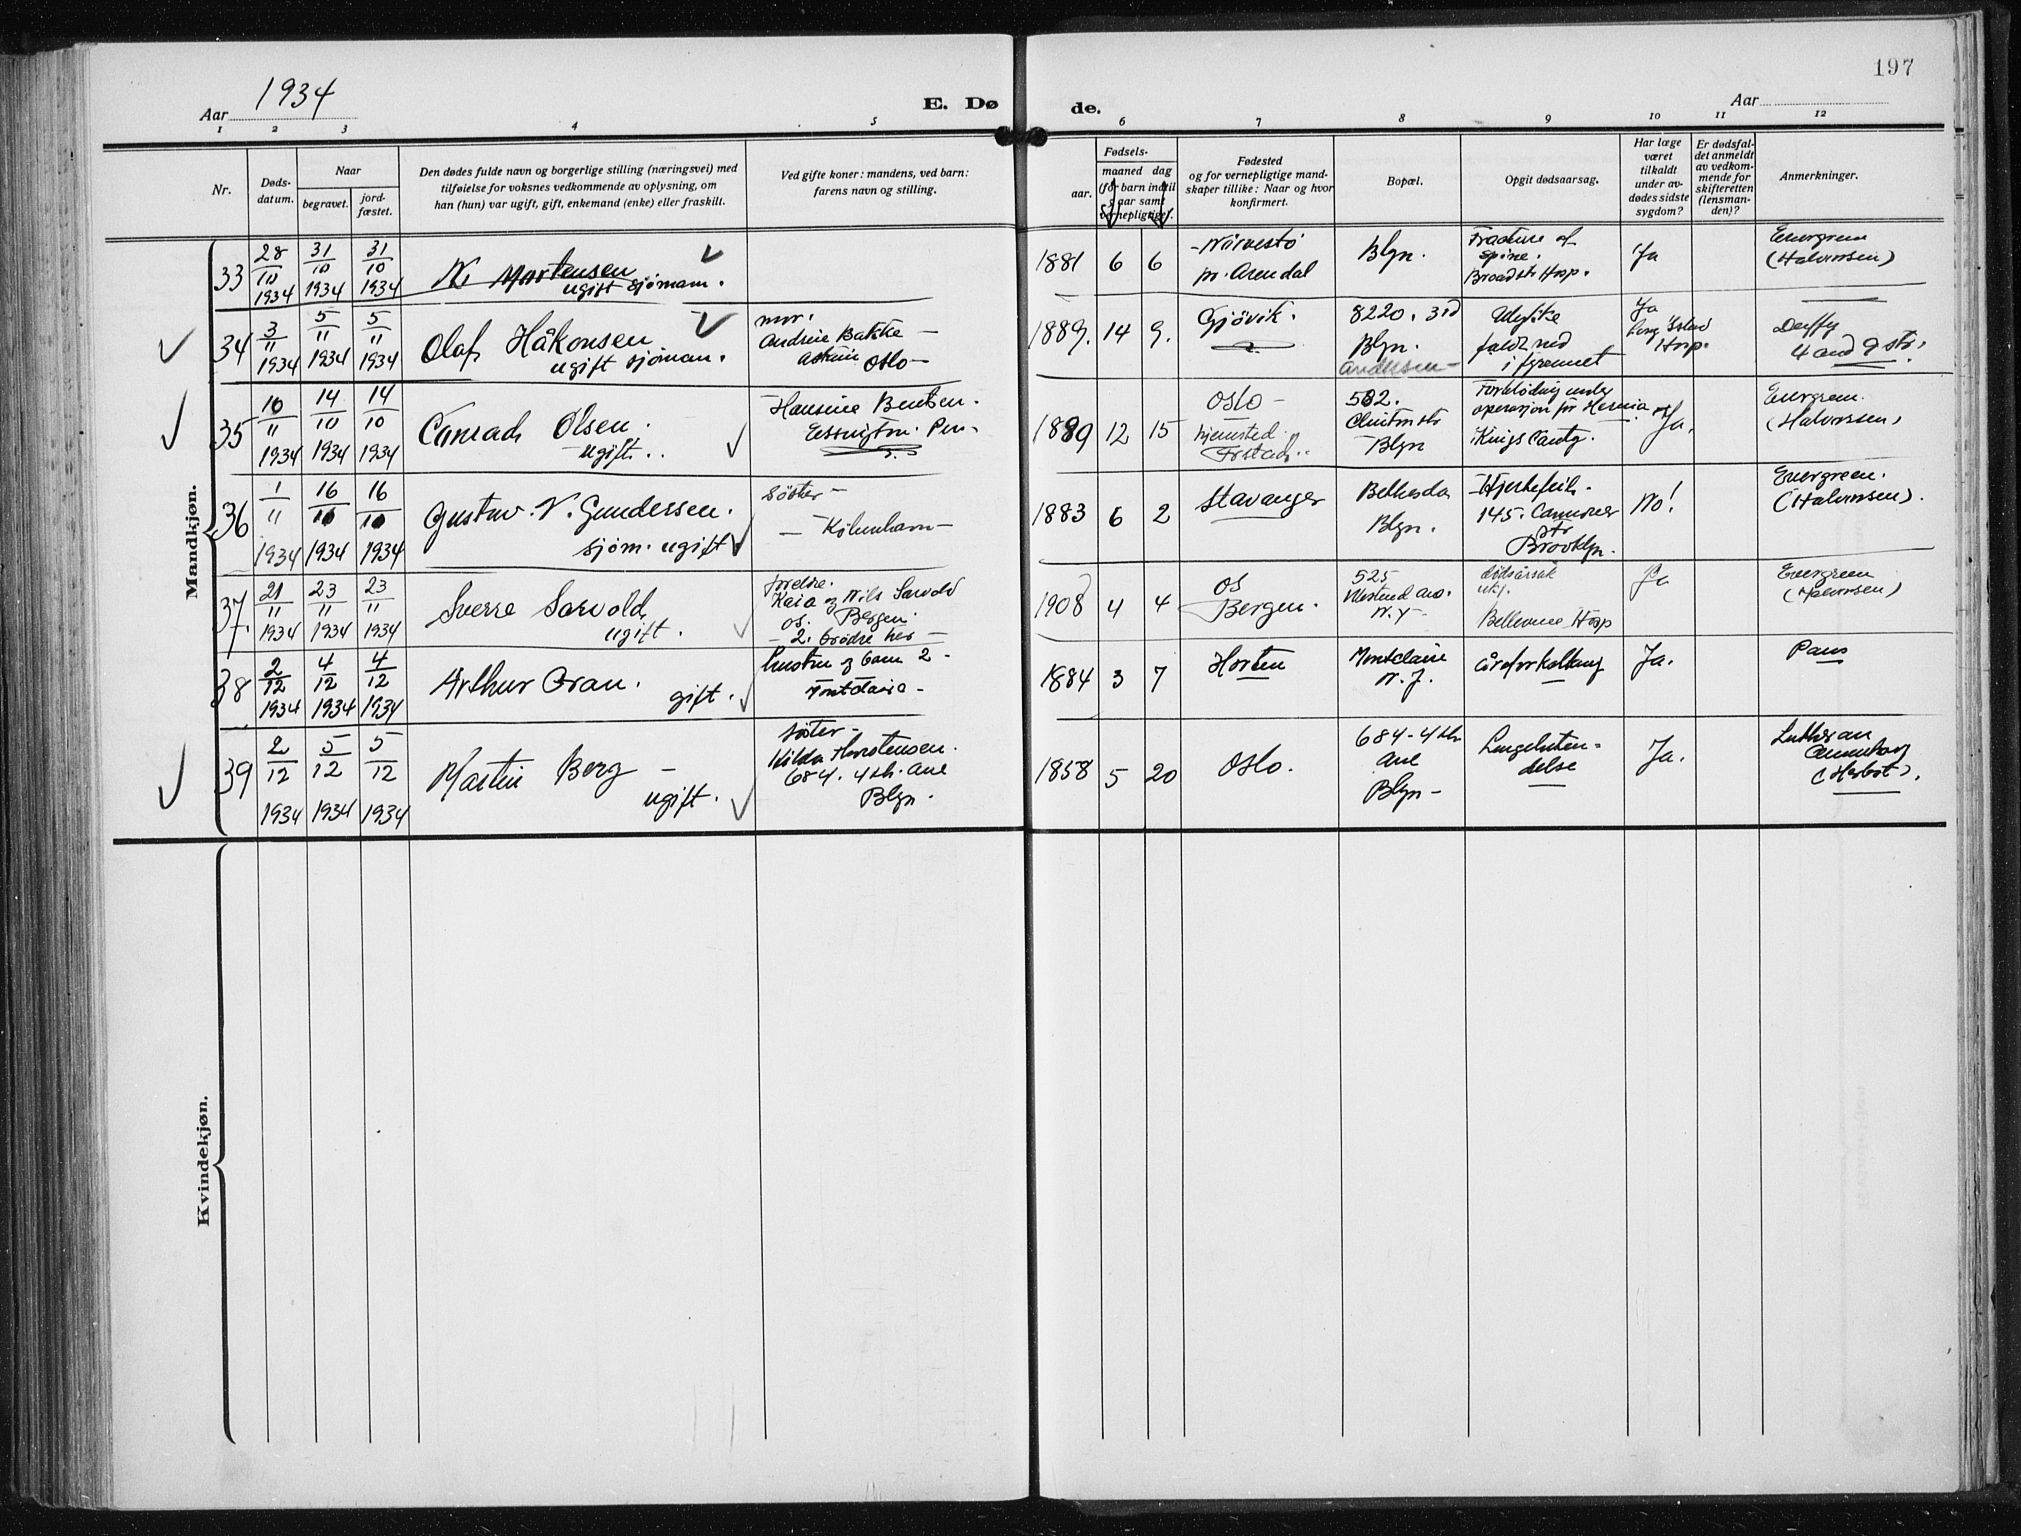 197
Aar 1934
E. Dø
de.
Aar
1 2 3 4 5 6 7 8 9 10 11 12
Nr.
Døds-
datum.
Naar
begravet.
jord-
fæstet.
Den dødes fulde navn og borgerlige stilling (næringsvei) med
tilføielse for voksnes vedkommende av oplysning, om
han (hun) var ugift, gift, enkemand (enke) eller fraskilt.
Ved gifte koner: mandens, ved barn:
farens navn og stilling.
Fødsels-
aar.
maaned dag
(for barn indtil
aar samt
vernepligtige).
Fødested
og for vernepligtige mand-
skaper tillike: Naar og hvor
konfirmert.
Bopæl.
Opgit dødsaarsag.
Har læge
været
tilkaldt
under av-
dødes sidste
sygdom?
Er dødsfal-
det anmeldt
av vedkom-
mende for
skifteretten
(lensman-
den)?
Anmerkninger.
Mandkjøn.
33
28/10 1934
31/10 1934
31/10 1934
N. Mortensen
ugift sjømann.
1881 6 6
m. Arendal
Blyn.
Fracture of
spine.
Broadstr Hosp.
Ja
Evergreen
(Halvorsen)
34
3/11 1934
5/11 1934
5/11 1934
Olaf Håkonsen
ugift sjöman.
mor.
Andrine
Oslo —
1889. 14 9.
Gjövik.
8220. 3rd
Blyn.
Andersen —
Ulykke
faldt ned
i
Ja
Long Island
Hosp.
4 and 9 str.
35
10/11 1934
14/10 1934
14/10 1934
Conrad Olsen.
ugift.
Hansine
Essington. Pen.
1889 12 15
Oslo —
hjemsted
502.
Clinton str
— Blyn
Forblödning under
operasjon for Hernia
Kings County.
Ja.
Evergreen.
(Halvorsen)
36
1/11 1934
16/10 1934
16/10 1934
Gustav. N. Gundersen.
sjöm. ugift
Söster —
— Köbenhavn —
1883 6 2
Stavanger
Bethesda
Blyn.
Hjertefeil.
145.
Str
Brooklyn.
No!
Evergreen.
(Halvorsen).
37.
21/11 1934
23/11 1934
23/11 1934
Sverre Sørvold
ugift.
foreldre.
Kaia og Nils Sørvold
Os. Bergen.
— 2. brödre her —
1908 4 4
Os
Bergen.
525
N. Y —
dødsårsak
ukj.
Bellevue Hosp
Ja
Evergreen
(Halvorsen)
38
2/12 1934
4/12 1934
4/12 1934
Arthur Gran.
gift.
hustru og barn 2 —
1884 3 7
Horten
Montclaire
N. J.
åreforkalkning
Ja.
39
2/12 1934
5/12 1934
5/12 1934
Martin Berg —
ugift.
söster —
Hilda
684. 4th. Ave
Blyn.
1858 5 20
Oslo.
684 - 4th
Ave
Blyn —
Lungebeten-
delse
Ja.
Lutheran
Cemetery
Kvindekjøn.